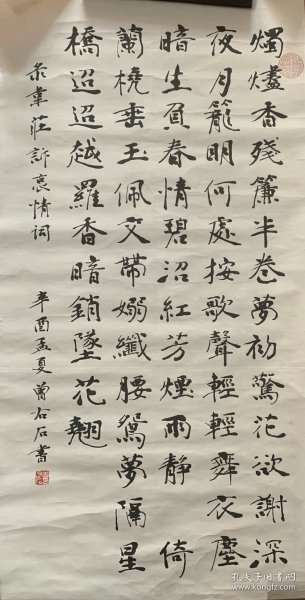 燭燼香殘簾半卷夢初驚花欲謝深
夜月籠明何處按歌聲輕輕舞衣塵
暗生負春情碧沼紅芳煙雨靜倚
蘭橈垂玉佩交帶嫋纖腰鴛夢隔星
橋迢迢越羅香暗銷墜花翹
录韋莊訴衷情詞
辛酉孟夏曾石書
孔夫子旧书网